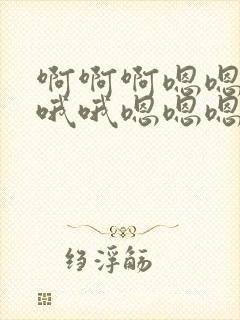 啊啊啊嗯嗯
哦哦嗯嗯嗯
绉浮觞